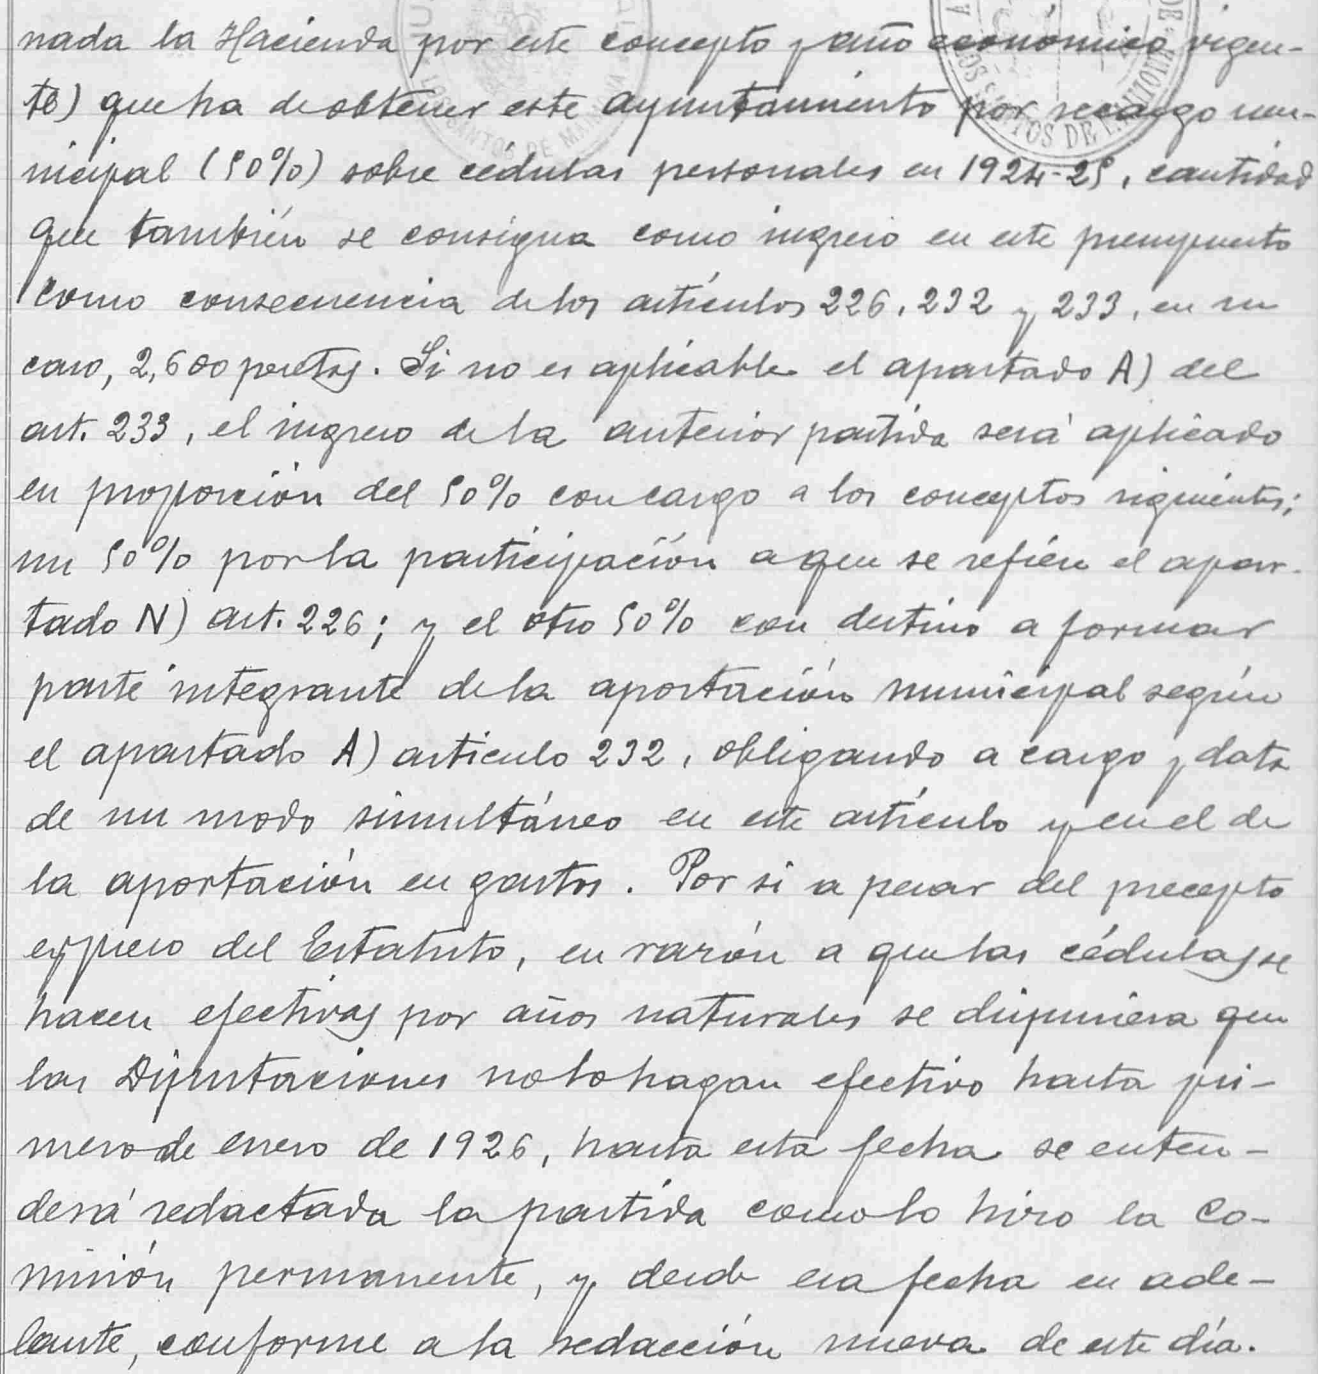 nada la Hacienda por este concepto y año económico vigen-
te) que ha de obtener este ayuntamiento por recargo mu-
nicipal (50%) sobre cédulas personales en 1924-25, cantidad
que también se consigna como ingreso en este presupuesto
como consecuencia de los artículos 226, 232 y 233, en su
caso, 2,600 pesetas. Si no es aplicable el apartado A) del
art. 233, el ingreso de la anterior partida será aplicado
en proporción del 50% con cargo a los conceptos siguientes;
un 50% por la participación a que se refiere el apar-
tado N) art. 226; y el otro 50% con destino a formar
parte integrante de la aportación municipal según
el apartado A) articulo 232, obligando a cargo y data
de un modo simultáneo en este artículo y en el de
la aportación en gastos. Por si a pesar del precepto
expreso del Estatuto, en razón a que las cédulas se
hacen efectivas por años naturales se dispusiera que
las Diputaciones no lo hagan efectivo hasta pri-
mero de enero de 1926, hasta esta fecha se enten-
derá redactada la partida como lo hizo la Co-
misión permanente, y desde esa fecha en ade-
lante, conforme a la redacción nueva de este día.